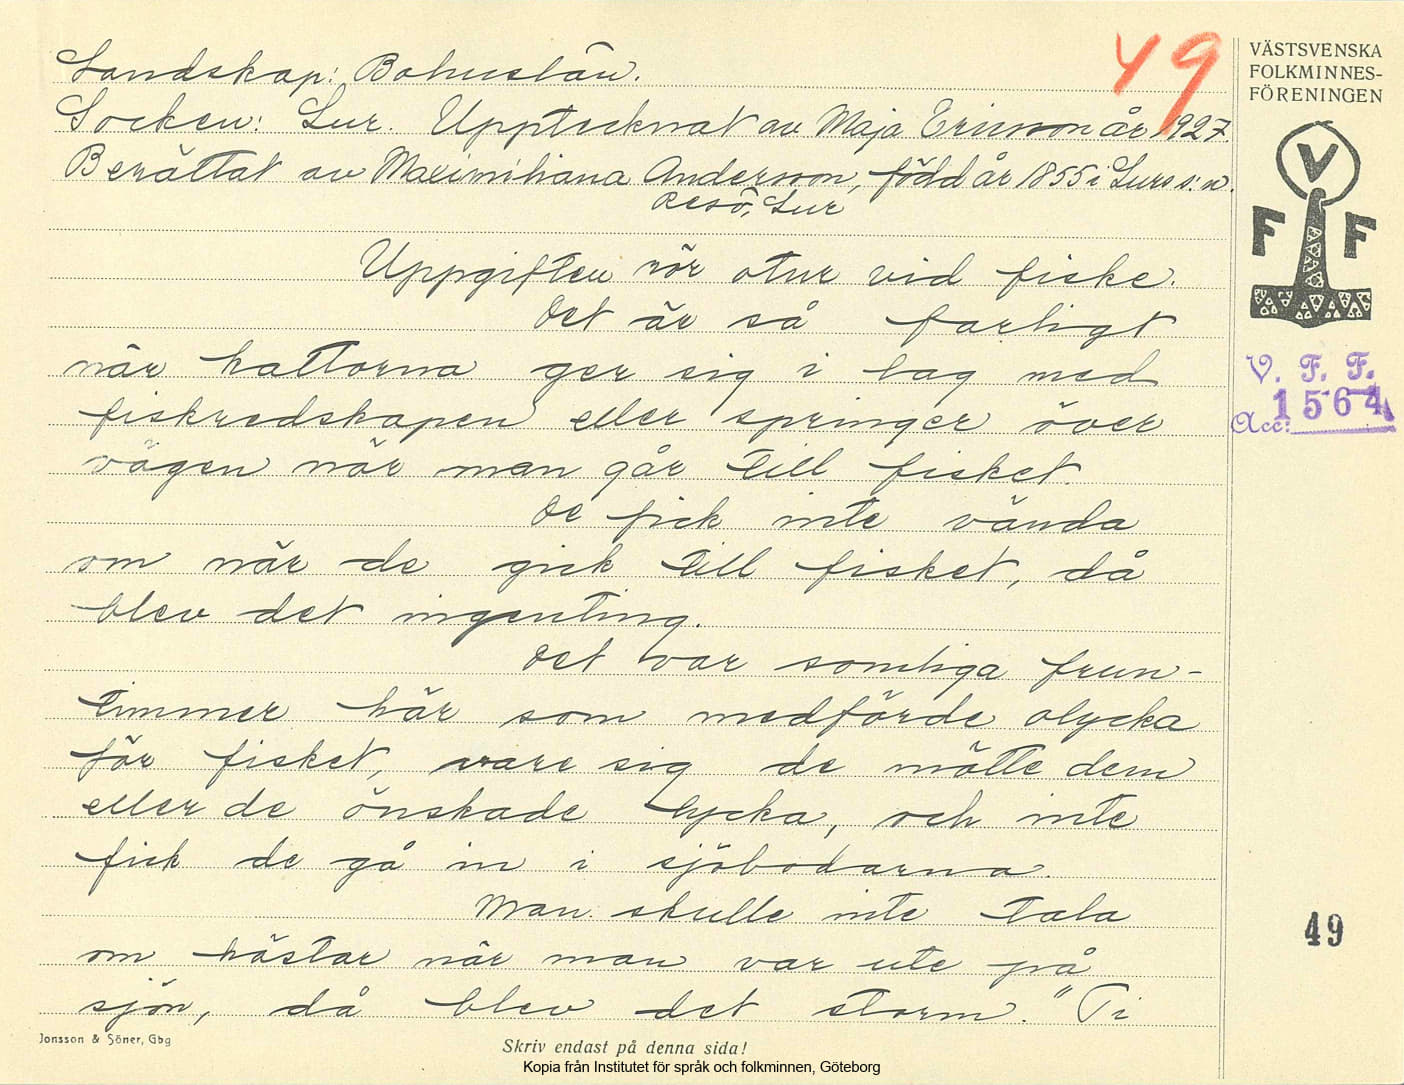 49
Landskap: Bohuslän.
Socken: Lur. Upptecknat av Maja Ericson år 1927.
Berättat av Maximiliana Anderson, född år 1855 i Lurs s:n.
Resö, Lur
Uppgiften rör otur vid fiske.
Det är så farligt
när kattorna ger sig i lag med
fiskredskapen eller springer över
vägen när man går till fisket.
De fick inte vända
om när de gick till fisket, då
blev det ingenting.
Det var somliga frun-
timmer här som medförde olycka
för fisket, vare sig de mötte dem
eller de önskade lycka, och inte
fick de gå in i sjöbodarna.
Man skulle inte tala
om hästar när man var ute på
sjön, då blev det storm. "Ti
VÄSTSVENSKA
FOLKMINNES-
FÖRENINGEN
V
F F
V. F. F.
Acc: 1564
49
Jonsson & Söner, Gbg
Skriv endast på denna sida!
Kopia från Institutet för språk och folkminnen, Göteborg